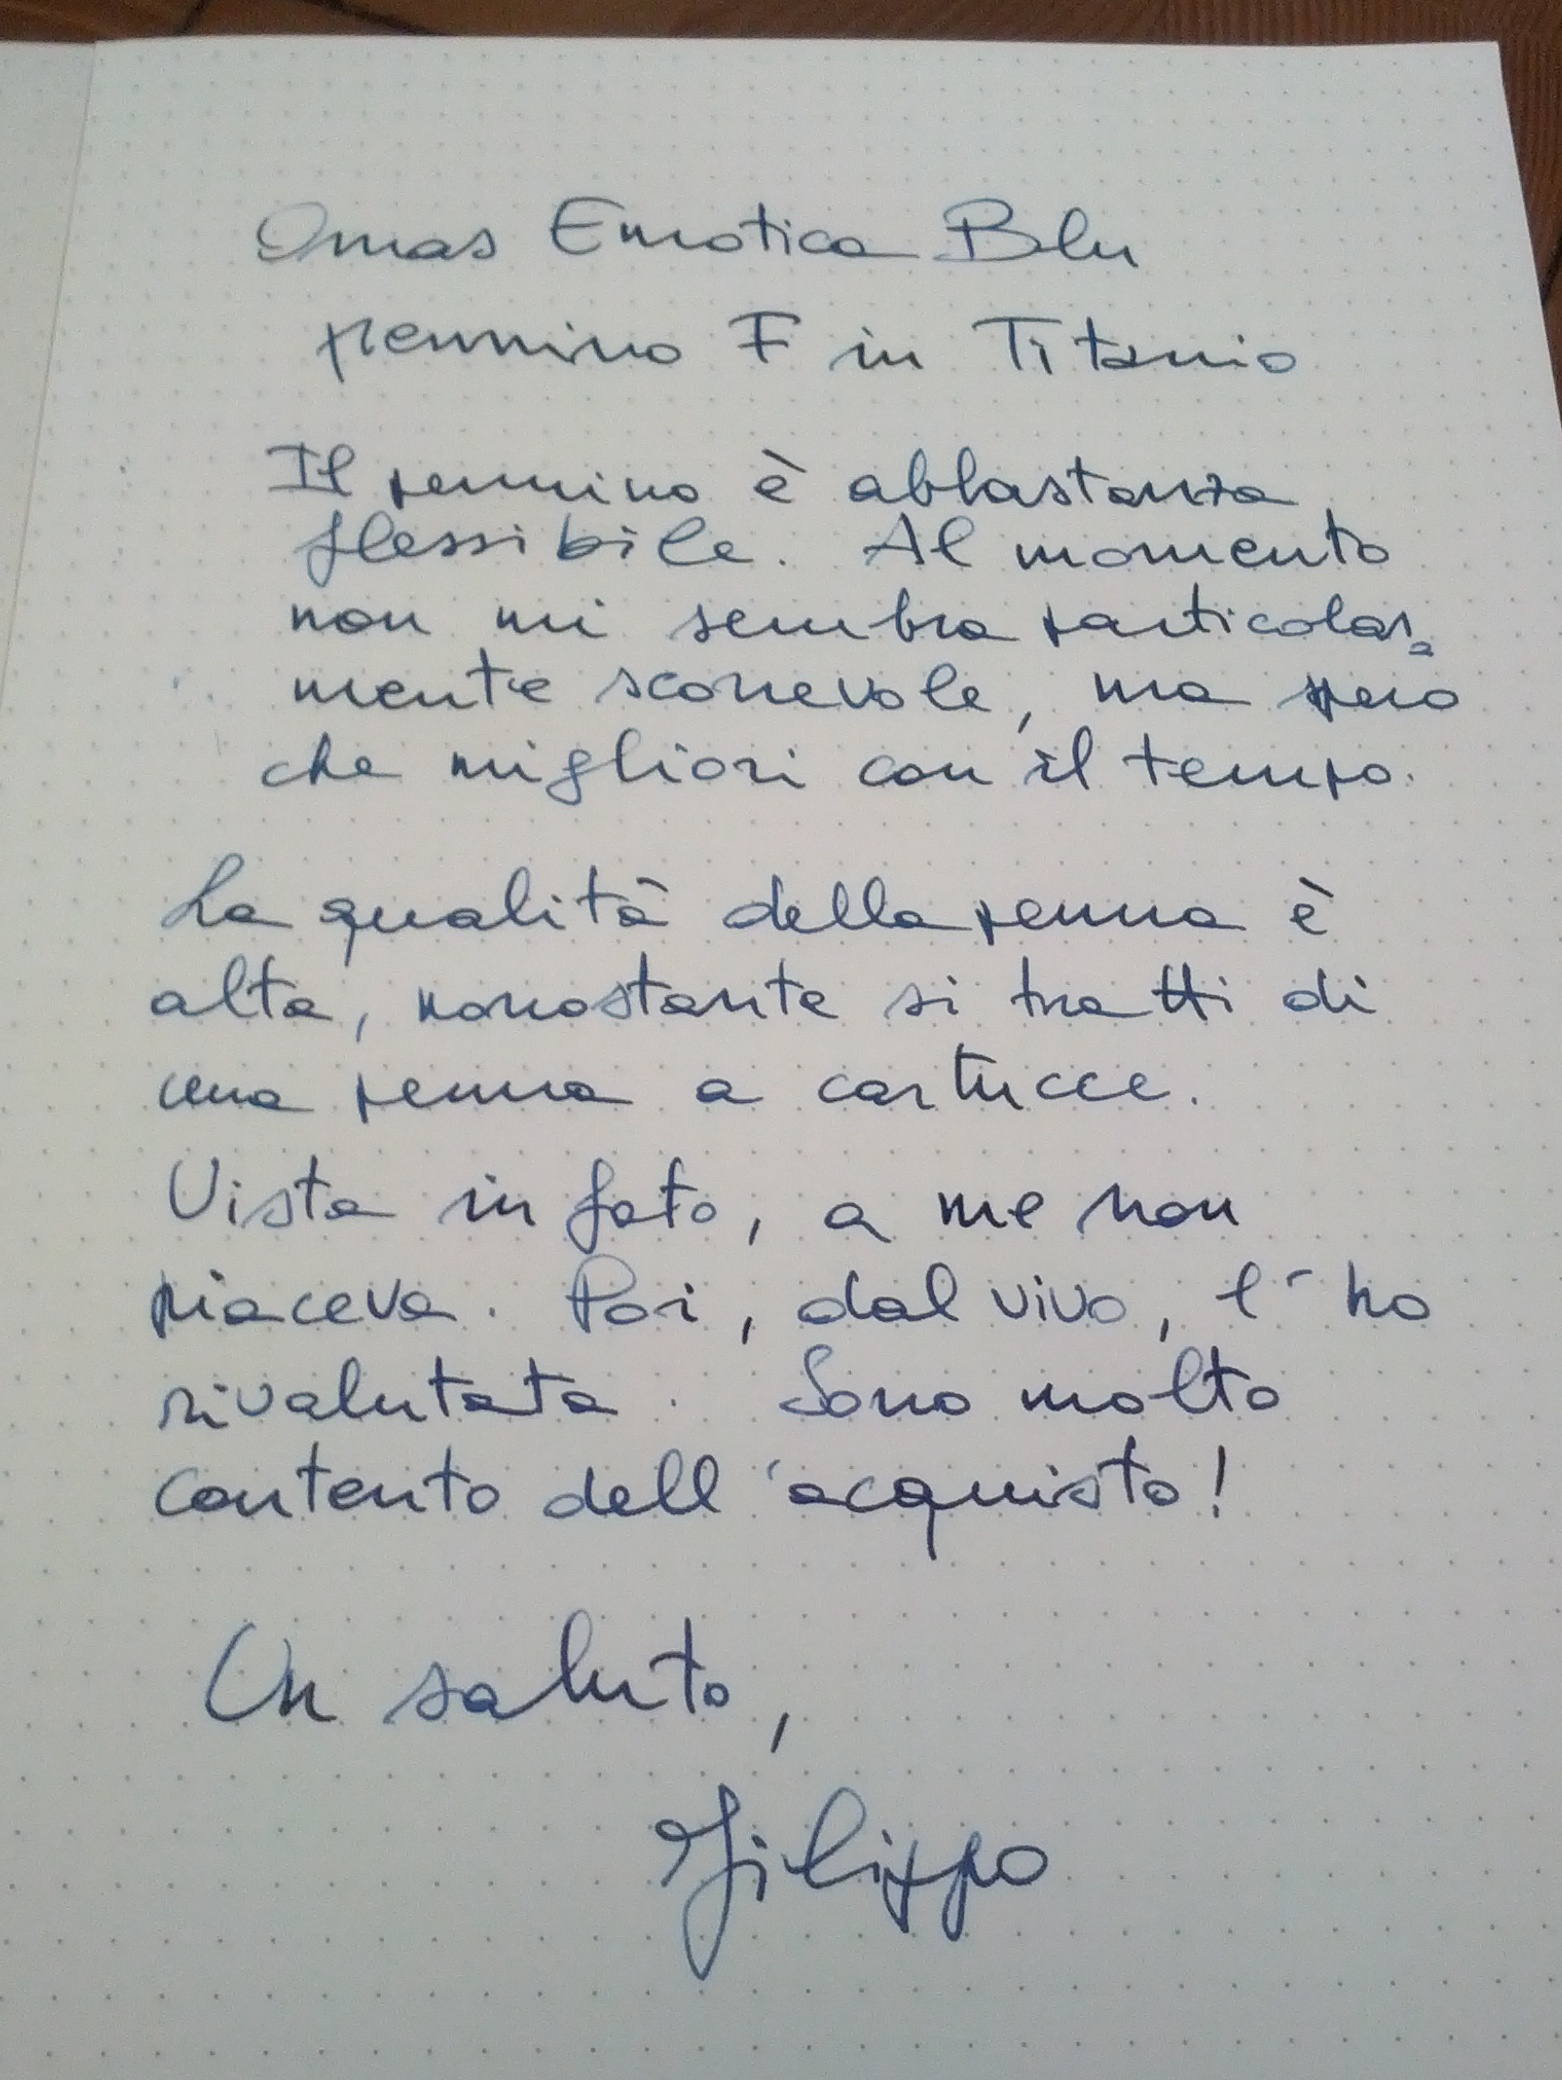 Omas Emotica Blu
pennino F in Titanio
Il pennino è abbastanza
flessibile. Al momento
non mi sembra particolar=
mente scorrevole, ma spero
che migliori con il tempo.
La qualità della penna è
alta, nonostante si tratti di
una penna a cartucce.
Vista in foto, a me non
piaceva. Poi, dal vivo, l'ho
rivalutata. Sono molto
contento dell'acquisto!
Un saluto,
Filippo